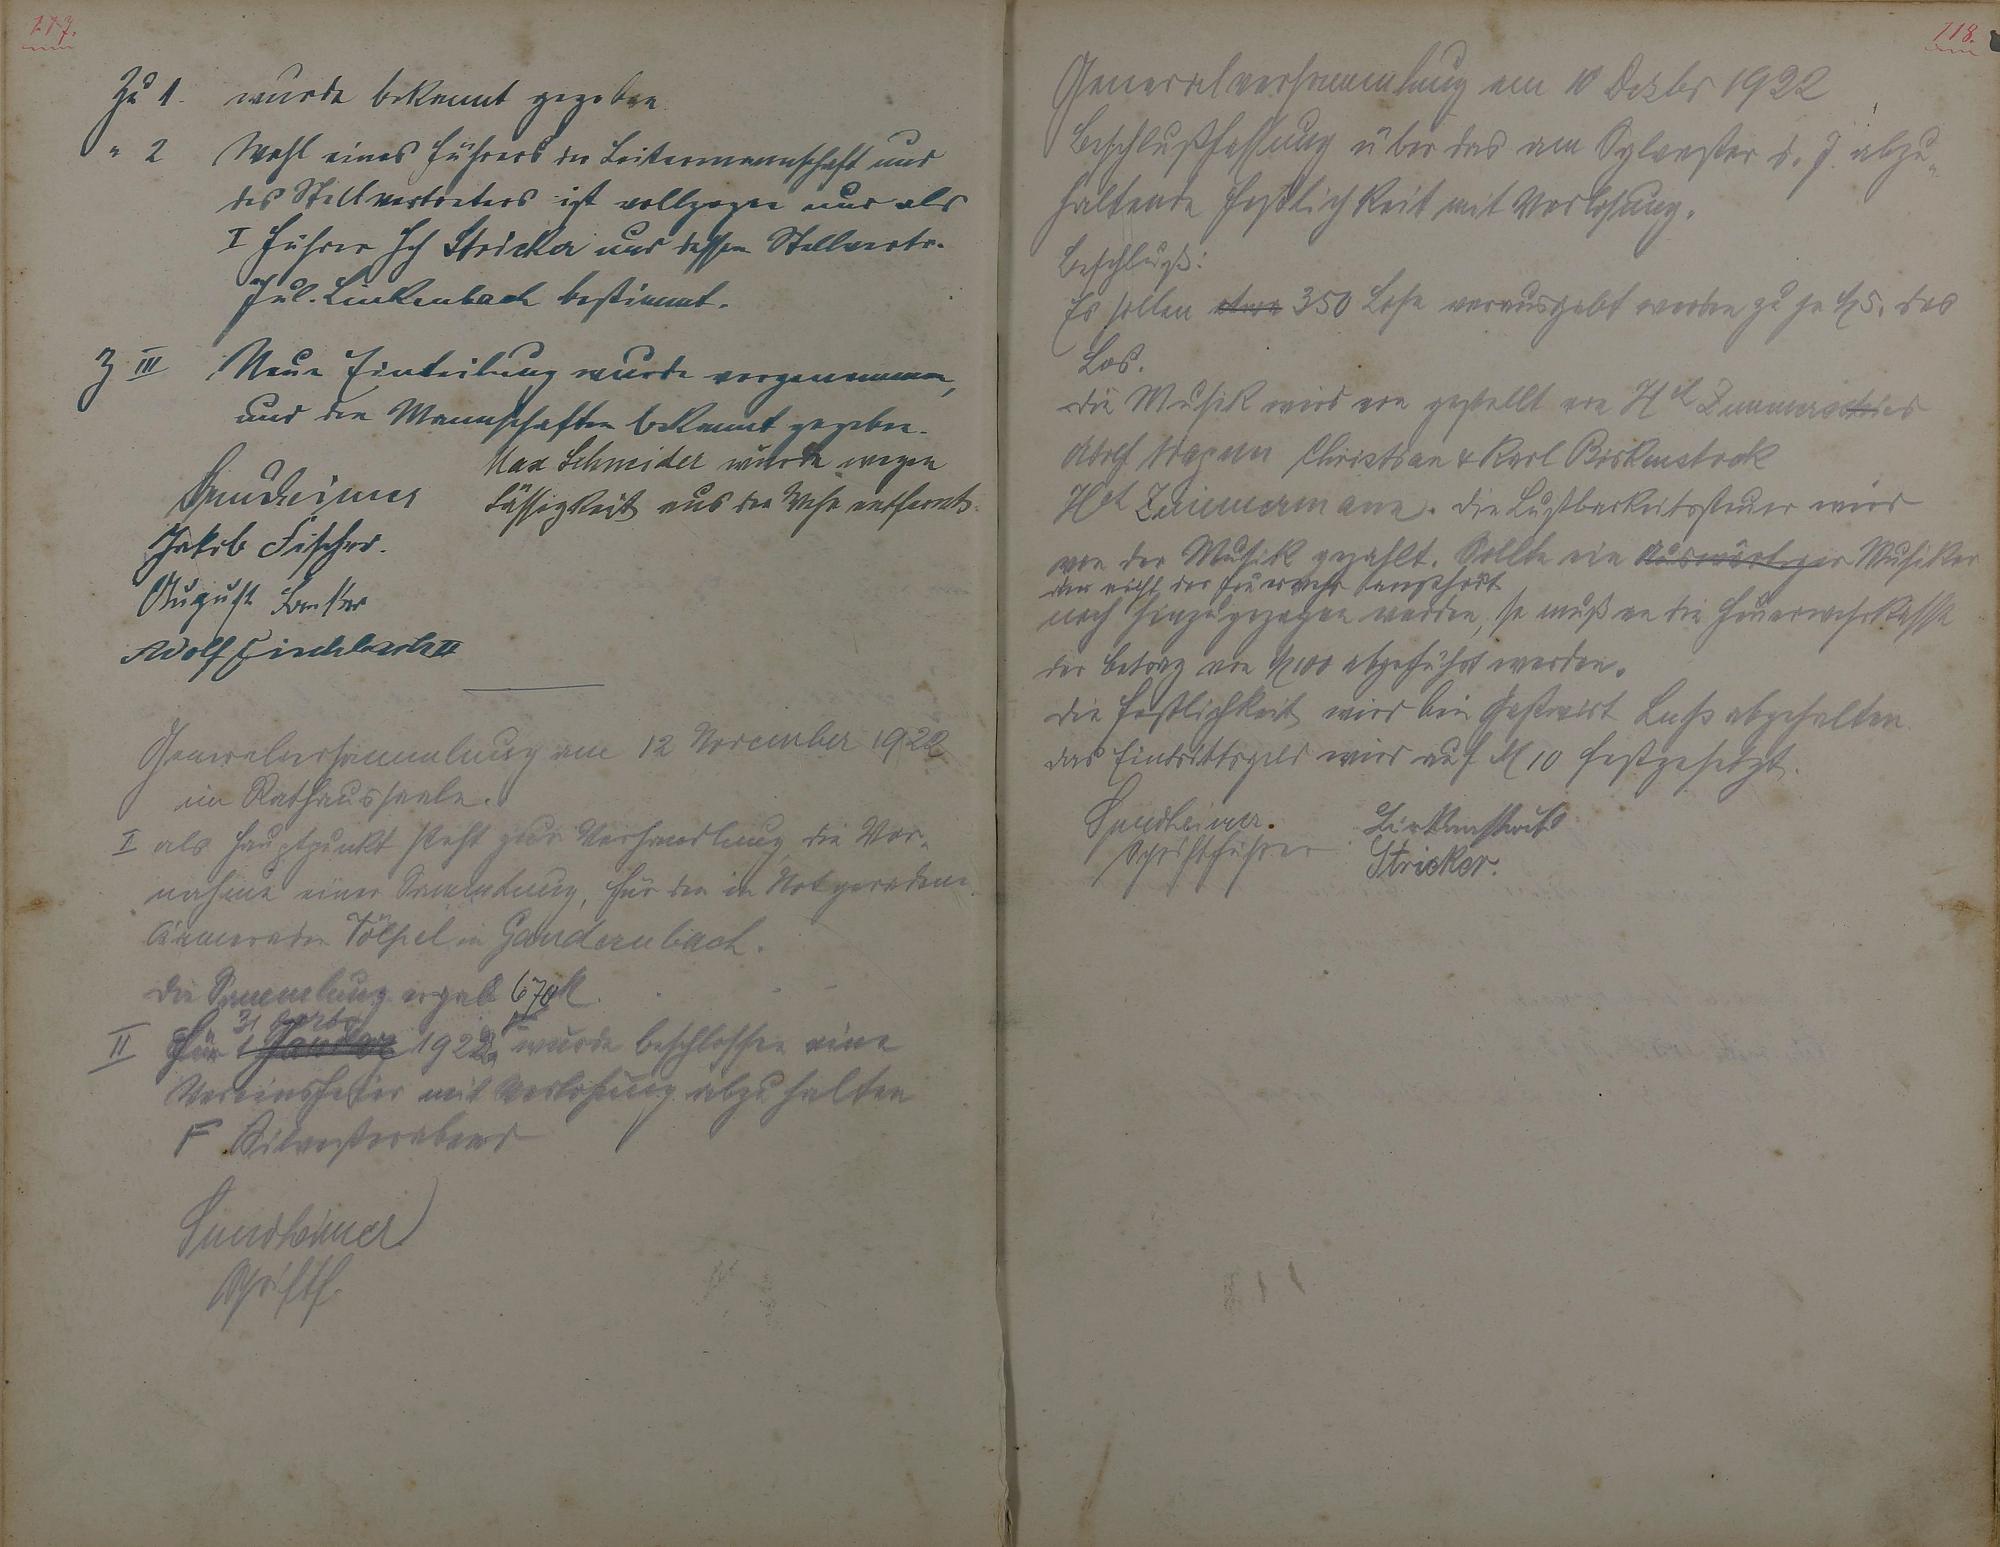 117.
Zu 1. wurde bekannt gegeben
" 2 Wahl eines Führers der Leitermannschaft und
des Stellvertreters ist vollzogen und als
I Führer Hch Stricker und dessen Stellvertr.
Jul. Linkenbach bestimmt.
Z III Neue Einteilung wurde vorgenommen,
und den Mannschaften bekannt gegeben.
Max Schneider wurde wegen
Lässigkeit aus der Wehr entfernt.
Sundheimer
Jakob Fischer.
August
Adolf II
Generalversammlung am 12 November 1922
im Rathaussaale.
I als Hauptpunkt steht zur Verhandlung die Vor-
nahme einer Sammlung, für den in Not geratenen
Kameraden Tölpel in Gandernbach.
Die Sammlung ergab 670 M.
31 Dezbr
II Für 1 Januar 1922 F wurde beschlossen eine
Vereinsfeier mit Verlosung abzuhalten
F Silvesterabend
Sundheimer
Schriftf.
118.
Generalversammlung am 10 Dezbr 1922
Beschlußfassung über das am Sylvester d. J. abzu-
haltende Festlichkeit mit Verlosung.
Beschluß:
Es sollen etwa 350 Lose verausgabt werden zu je M 5. das
Los.
Die Musik wird von gestellt von Hch
Adolf Wagner Christian & Karl Birkenstock
Hch Zimmermann. Die Lustbarkeitssteuer wird
von der Musik gezahlt. Sollte ein Auswärtiger Musiker
der nicht der Feuerwehr angehört
noch hinzugezogen werden, so muß an die Feuerwehrkasse
der Betrag von M 100 abgeführt werden.
Die Festlichkeit wird bei Gastwirt abgehalten.
Das Eintrittsgeld wird auf M 10 festgesetzt.
Sundheimer. Birkenstock
Schriftführer Stricker.